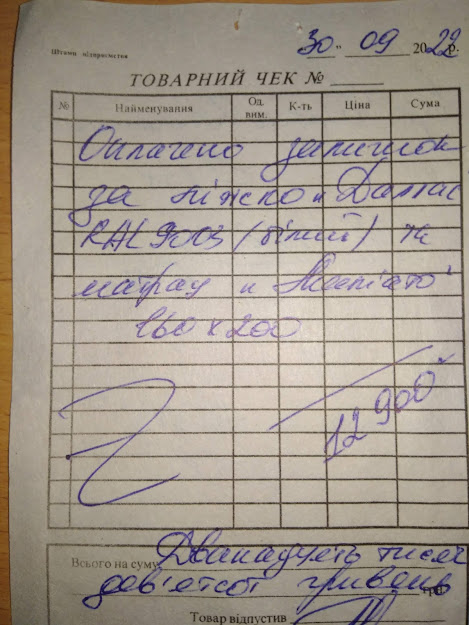 Штамп підприємства
30 " 09 2022 р.
ТОВАРНИЙ ЧЕК №
№ Найменування Од. вим. К-ть Ціна Сума
Оплачено залишок
за ліжко "Даллас
RAL 9003 (білий) та
матрац "
160 x 200
12 900
Всього на суму Дванадцять тисяч
дев'ятсот гривень грн.
Товар відпустив